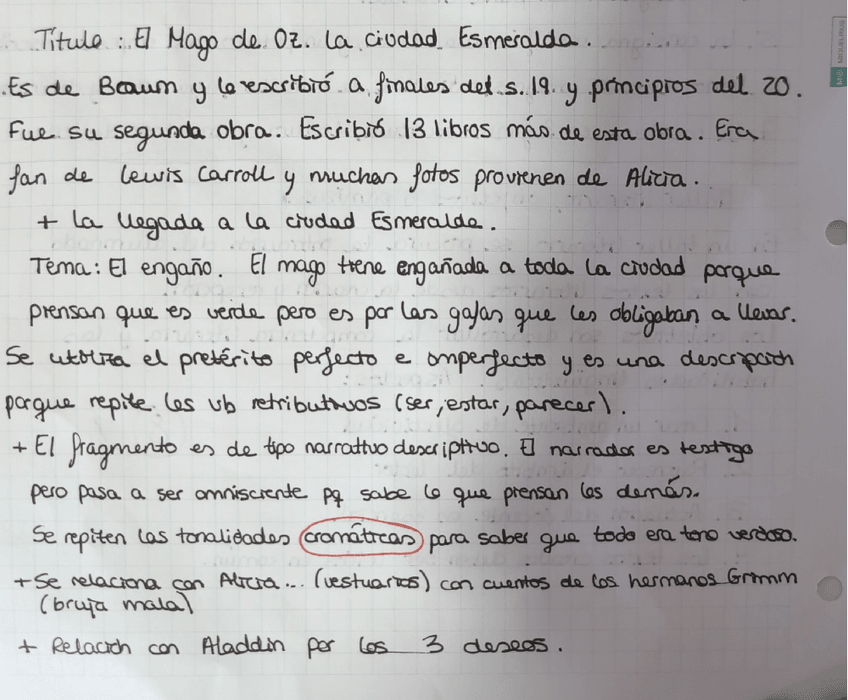 Título: El Mago de Oz. La ciudad Esmeralda.
Es de Beaum y lo escribió a finales del s. 19 y principios del 20.
Fue su segunda obra. Escribió 13 libros más de esta obra. Era
fan de Lewis Carroll y muchas fotos provienen de Alicia.
+ La llegada a la ciudad Esmeralda.
Tema: El engaño. El mago tiene engañada a toda la ciudad porque
piensan que es verda pero es por las gafas que les obligaban a llevar.
Se utiliza el pretérito perfecto e imperfecto y es una descripción
porque repite los vb retributivos (ser, estar, parecer).
+ El fragmento es de tipo narrativo descriptivo. El narrador es testigo
pero pasa a ser omnisciente pq sabe lo que piensan los demás.
Se repiten las tonalidades cromáticas para saber que todo era tono verdoso.
+ Se relaciona con Alicia... (vestuarios) con cuentos de los hermanos Grimm
(bruja mala)
+ Relación con Aladdin por los 3 deseos.